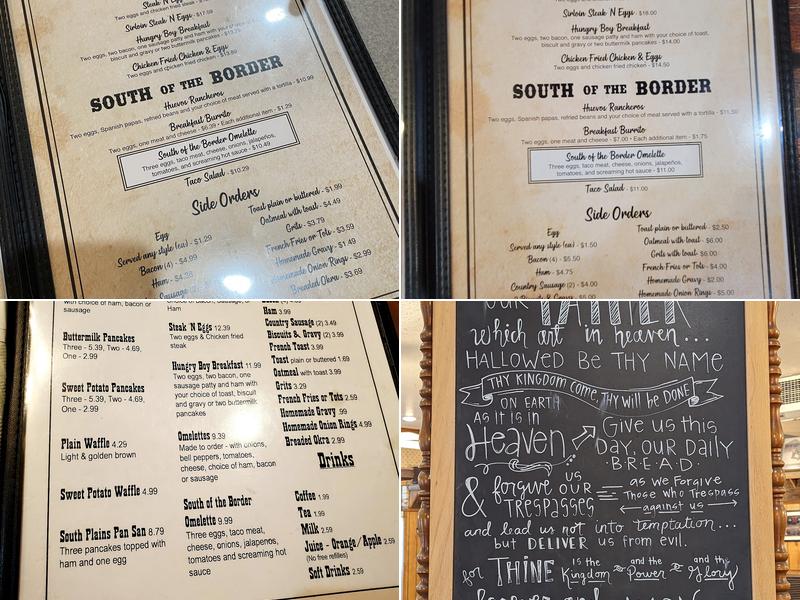 Steak N Eggs
Two eggs and chicken fried steak
Sirloin Steak N Eggs - $17.59
Hungry Boy Breakfast
Two eggs, two bacon, one sausage patty and ham with your choice of toast,
biscuit and gravy or two buttermilk pancakes
Chicken Fried Chicken & Eggs
Two eggs and chicken fried chicken
SOUTH OF THE BORDER
Huevos Rancheros
Two eggs, Spanish papas, refried beans and your choice of meat served with a tortilla - $10.99
Breakfast Burrito
Two eggs, one meat and cheese - $6.39 • Each additional item - $1.29
South of the Border Omelette
Three eggs, taco meat, cheese, onions, jalapeños,
tomatoes, and screaming hot sauce - $10.49
Taco Salad - $10.29
Side Orders
Egg
Served any style (ea) - $1.29
Bacon (4) - $4.99
Ham - $4.28
Sausage
Toast plain or buttered - $1.99
Oatmeal with toast - $4.49
Grits - $3.79
French Fries or Tots - $3.59
Homemade Gravy - $1.49
Homemade Onion Rings - $2.99
Breaded Okra - $3.69
Two eggs and chicken fried steak
Sirloin Steak N Eggs - $18.00
Hungry Boy Breakfast
Two eggs, two bacon, one sausage patty and ham with your choice of toast,
biscuit and gravy or two buttermilk pancakes - $14.00
Chicken Fried Chicken & Eggs
Two eggs and chicken fried chicken - $14.50
SOUTH OF THE BORDER
Huevos Rancheros
Two eggs, Spanish papas, refried beans and your choice of meat served with a tortilla - $11.50
Breakfast Burrito
Two eggs, one meat and cheese - $7.00 • Each additional item - $1.75
South of the Border Omelette
Three eggs, taco meat, cheese, onions, jalapeños,
tomatoes, and screaming hot sauce - $11.00
Taco Salad - $11.00
Side Orders
Egg
Served any style (ea) - $1.50
Bacon (4) - $5.50
Ham - $4.75
Country Sausage (2) - $4.00
Toast plain or buttered - $2.50
Oatmeal with toast - $6.00
Grits with toast - $6.00
French Fries or Tots - $4.00
Homemade Gravy - $2.00
Homemade Onion Rings - $5.00
with choice of ham, bacon or
sausage
Buttermilk Pancakes
Three - 5.39, Two - 4.69,
One - 2.99
Sweet Potato Pancakes
Three - 5.39, Two - 4.69,
One - 2.99
Plain Waffle 4.29
Light & golden brown
Sweet Potato Waffle 4.99
South Plains Pan San 8.79
Three pancakes topped with
ham and one egg
Ham
Steak N Eggs 12.39
Two eggs & Chicken fried
steak
Hungry Boy Breakfast 11.99
Two eggs, two bacon, one
sausage patty and ham with
your choice of toast, biscuit
and gravy or two buttermilk
pancakes
Omelettes 9.39
Made to order - with onions,
bell peppers, tomatoes,
cheese, choice of ham, bacon
or sausage
South of the Border
Omelette 9.99
Three eggs, taco meat,
cheese, onions, jalapenos,
tomatoes and screaming hot
sauce
Ham 3.99
Country Sausage (2) 3.49
Biscuits & Gravy (2) 3.99
French Toast 3.99
Toast plain or buttered 1.69
Oatmeal with toast 3.99
Grits 3.29
French Fries or Tots 2.59
Homemade Gravy .99
Homemade Onion Rings 4.99
Breaded Okra 2.99
Drinks
Coffee 1.99
Tea 1.99
Milk 2.59
Juice - Orange/Apple 2.59
(No free refills)
Soft Drinks 2.59
OUR FATHER
which art in heaven...
HALLOWED BE THY NAME
THY KINGDOM come, THY will be DONE
ON EARTH
AS IT IS IN
Heaven
Give us this
DAY, OUR DAILY
·BREAD·
& forgive us
OUR
TRESPASSES
as we Forgive
Those who Trespass
against us
and lead us not into temptation...
but DELIVER us from evil.
for THINE is the Kingdom and the Power and the Glory